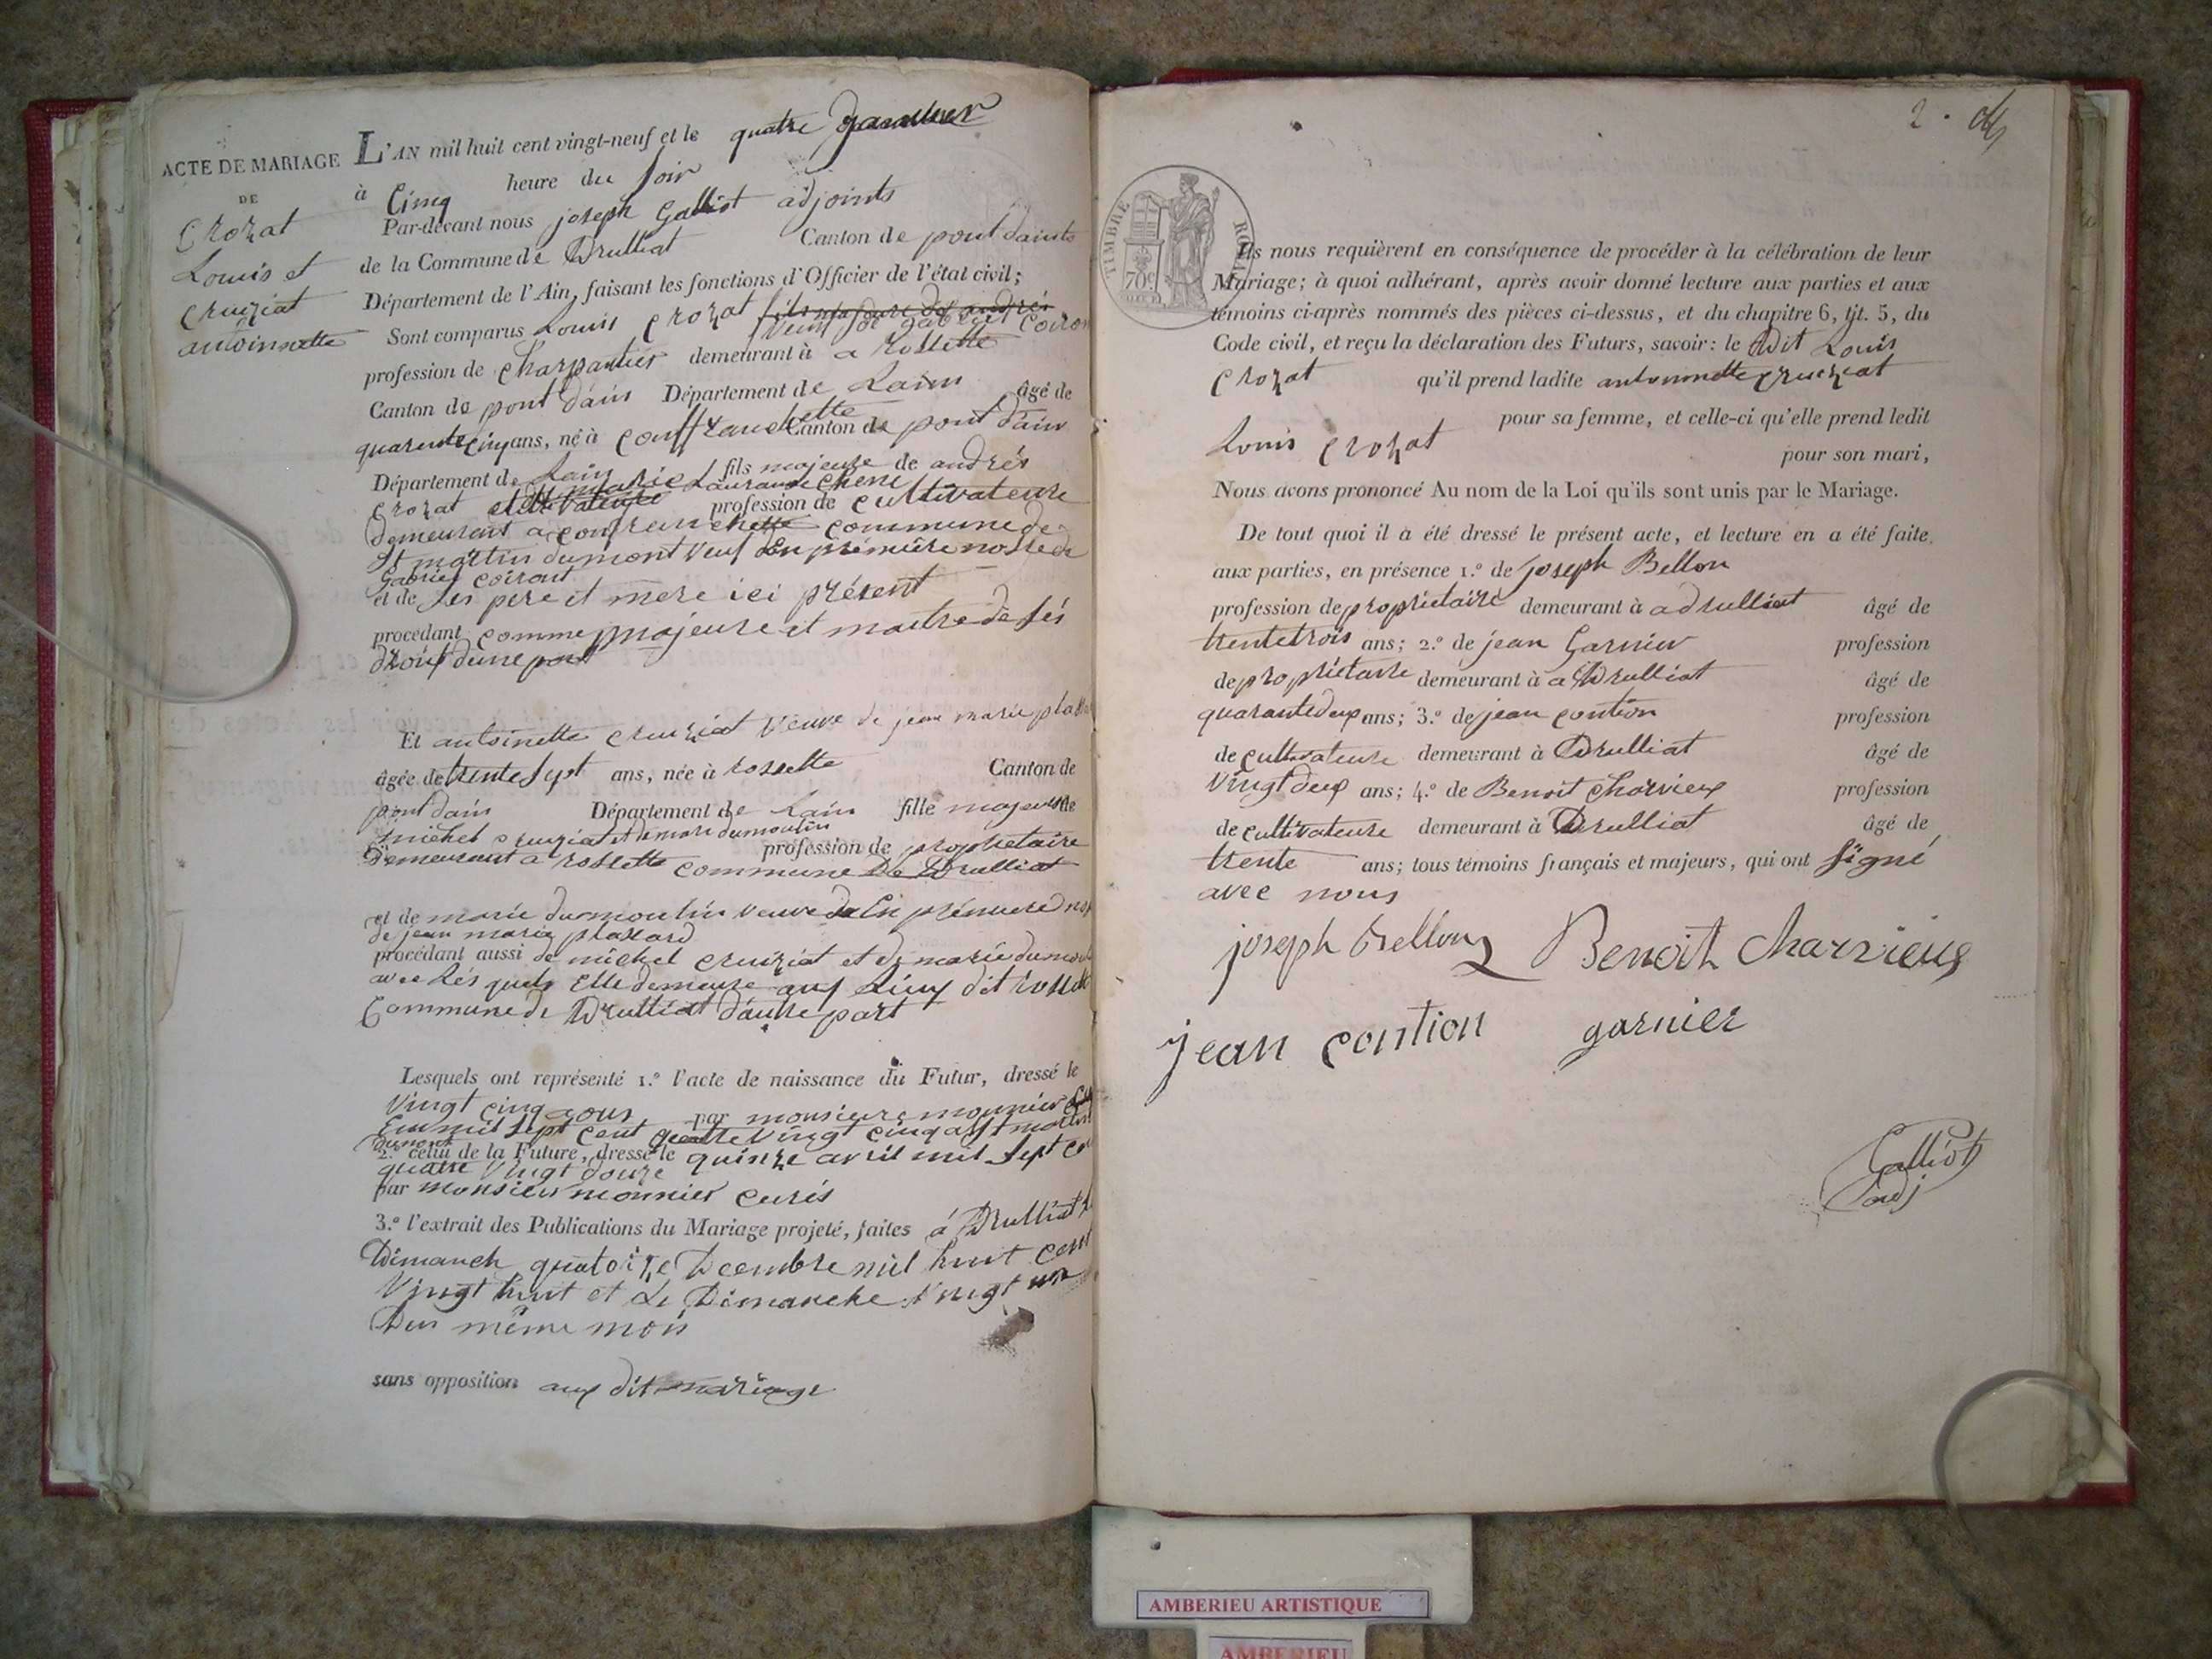 ACTE DE MARIAGE
DE
Crozat
Louis et
Cruiziat
antoinnette
L'AN mil huit cent vingt-neuf et le quatre Janvier
à Cinq heure du soir
Par-devant nous joseph Galliot adjoints
de la Commune de Drulliat Canton de pont daints
Département de l'Ain, faisant les fonctions d'Officier de l'état civil;
Sont comparus Louis Crozat fils majeure de andrés
veuf de gabriel Coiron
profession de Charpantier demeurant à a Rossette
Canton de pont dain Département de Lain âgé de
quarente cinq ans, né à Conffranchette Canton de pont dain
Département de Lain fils majeure de andrés
Crozat profession de Cultivateure
Demeurent a Confranchette commune de
St martin dumont veuf En prémière nosse de
Gabriel Coiront
et de ses pere et mere ici présent
procédant comme majeure et maitre de sés
droits dune part
Et antoinette Cruiziat veuve de jean marie
âgée de trente sept ans, née à rossette Canton de
pont dain Département de Lain fille majeure de
michel Cruiziat et de marie dumoulin
profession de proprietaire
Demeurant a rossette commune De Drulliat
et de marie dumoulin veuve de En prémiere
de jean marie plassard
procédant aussi de michel Cruiziat et de marie
avec lés quels Elle demeure aux Lieux dit
Commune de Drulliat dautre part
Lesquels ont représenté 1.º l'acte de naissance du Futur, dressé le
Vingt cinq aous par monsieure monnier
Lan mil sept cent quatre vingt cinq a St martin
dumont
2.º celui de la Future, dressé le quinze avril mil sept
quatre Vingt douze
par monsieur monnier curés
3.º l'extrait des Publications du Mariage projeté, faites á Drulliat
Dimanch quatorze Dcembre mil huit cent
Vingt huit et Le Dimanche vingt un
Du même mois
sans opposition aux dit mariage
2.
TIMBRE ROYAL
70 C.
Ils nous requièrent en conséquence de procéder à la célébration de leur
Mariage; à quoi adhérant, après avoir donné lecture aux parties et aux
témoins ci-après nommés des pièces ci-dessus, et du chapitre 6, tit. 5, du
Code civil, et reçu la déclaration des Futurs, savoir: le Dit Louis
Crozat qu'il prend ladite antoinnette Cruiziat
pour sa femme, et celle-ci qu'elle prend ledit
Louis Crozat pour son mari,
Nous avons prononcé Au nom de la Loi qu'ils sont unis par le Mariage.
De tout quoi il a été dressé le présent acte, et lecture en a été faite
aux parties, en présence 1.º de joseph Bellon
profession de propriétaire demeurant à a drulliat âgé de
trente trois ans; 2.º de jean Garnier profession
de propriétaire demeurant à a Drulliat âgé de
quarante deux ans; 3.º de jean Contion profession
de cultivateure demeurant à Drulliat âgé de
Vingt deux ans; 4.º de Benoit Charvieux profession
de cultivateure demeurant à Drulliat âgé de
trente ans; tous témoins français et majeurs, qui ont signé
avec nous
joseph Bellon Benoit Charvieux
jean Contion garnier
Galliot
adj
AMBERIEU ARTISTIQUE
AMBERIEU